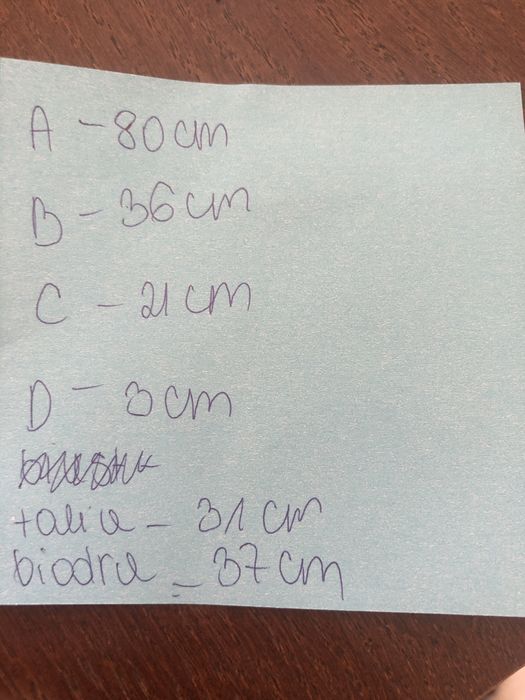 A - 80 cm
B - 36 cm
C - 21 cm
D - 3 cm
talia - 31 cm
biodra - 37 cm